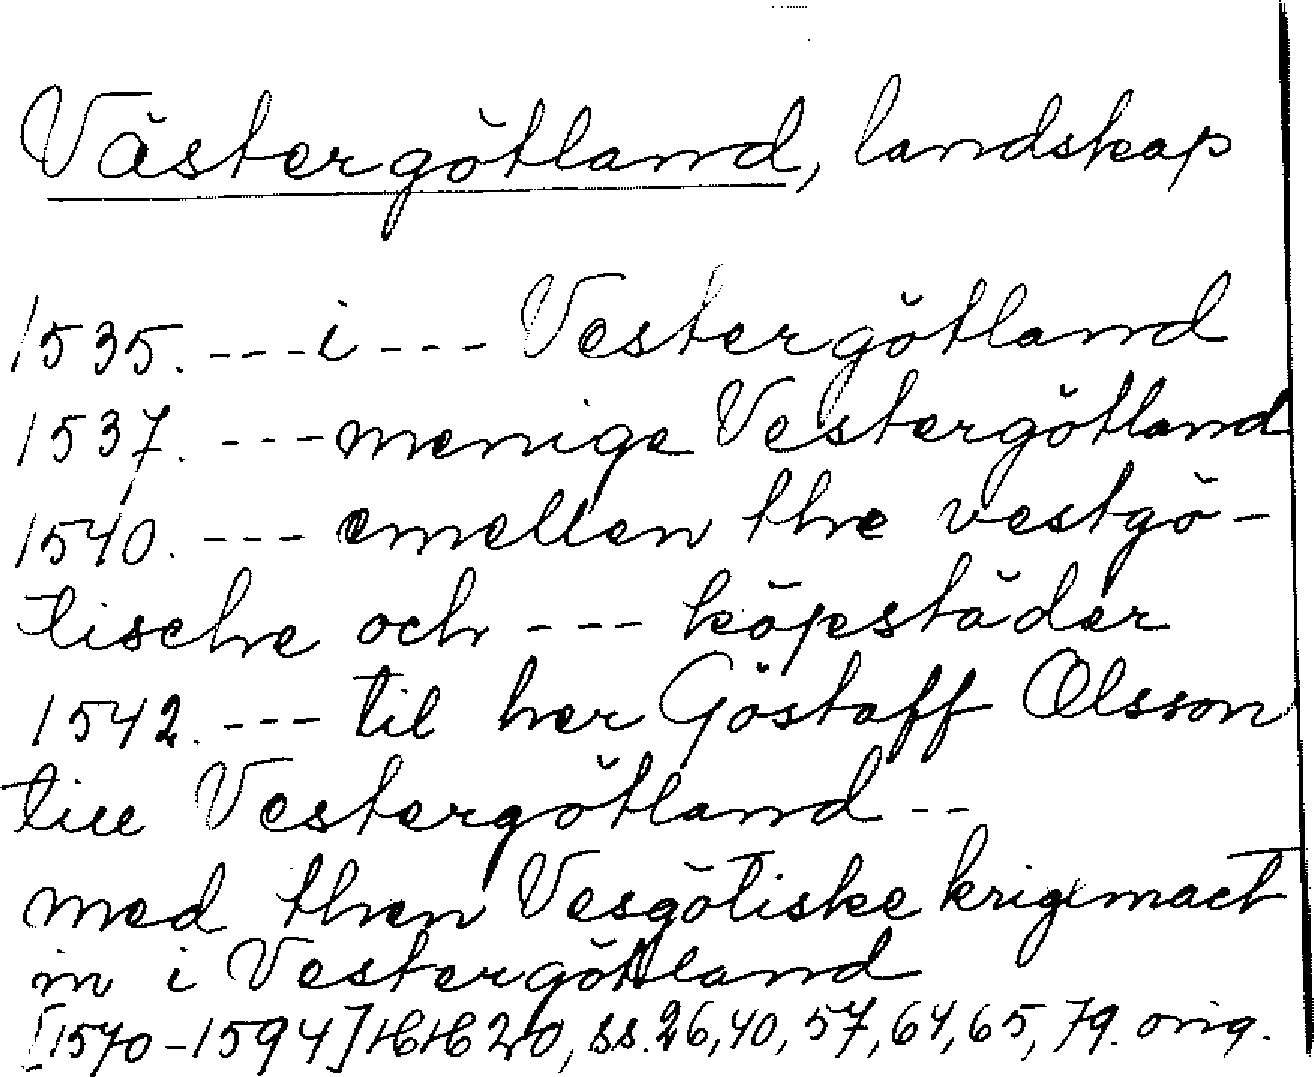 Västergötland, landskap
1535. --- i --- Vestergötland
1537. --- menige Vestergötland
1540. --- emellen the vestgö-
tische och --- köpstäder
1542. --- til her Göstaff Olsson
till Vestergötland --
med then Vesgötiske krigxmact
in i Vestergötland
[1570-1594] HH 20, ss. 26, 40, 57, 64, 65, 79. orig.